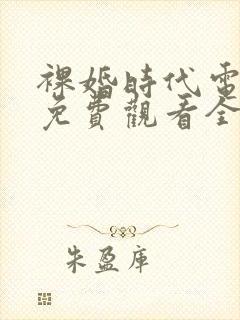 裸婚時代電
免費觀看全
朱盈庫